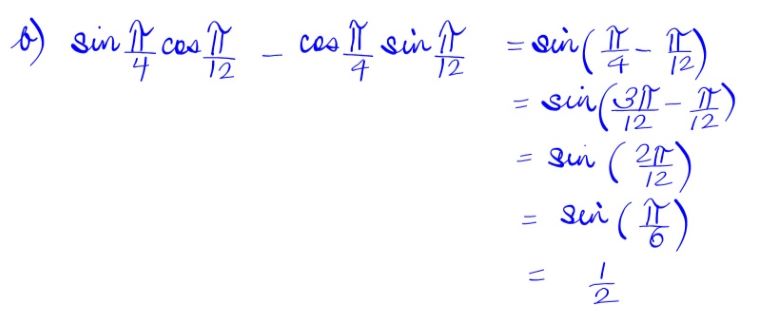 b) sin π/4 cos π/12 - cos π/4 sin π/12 = sin(π/4 - π/12)
= sin(3π/12 - π/12)
= sin (2π/12)
= sin (π/6)
= 1/2